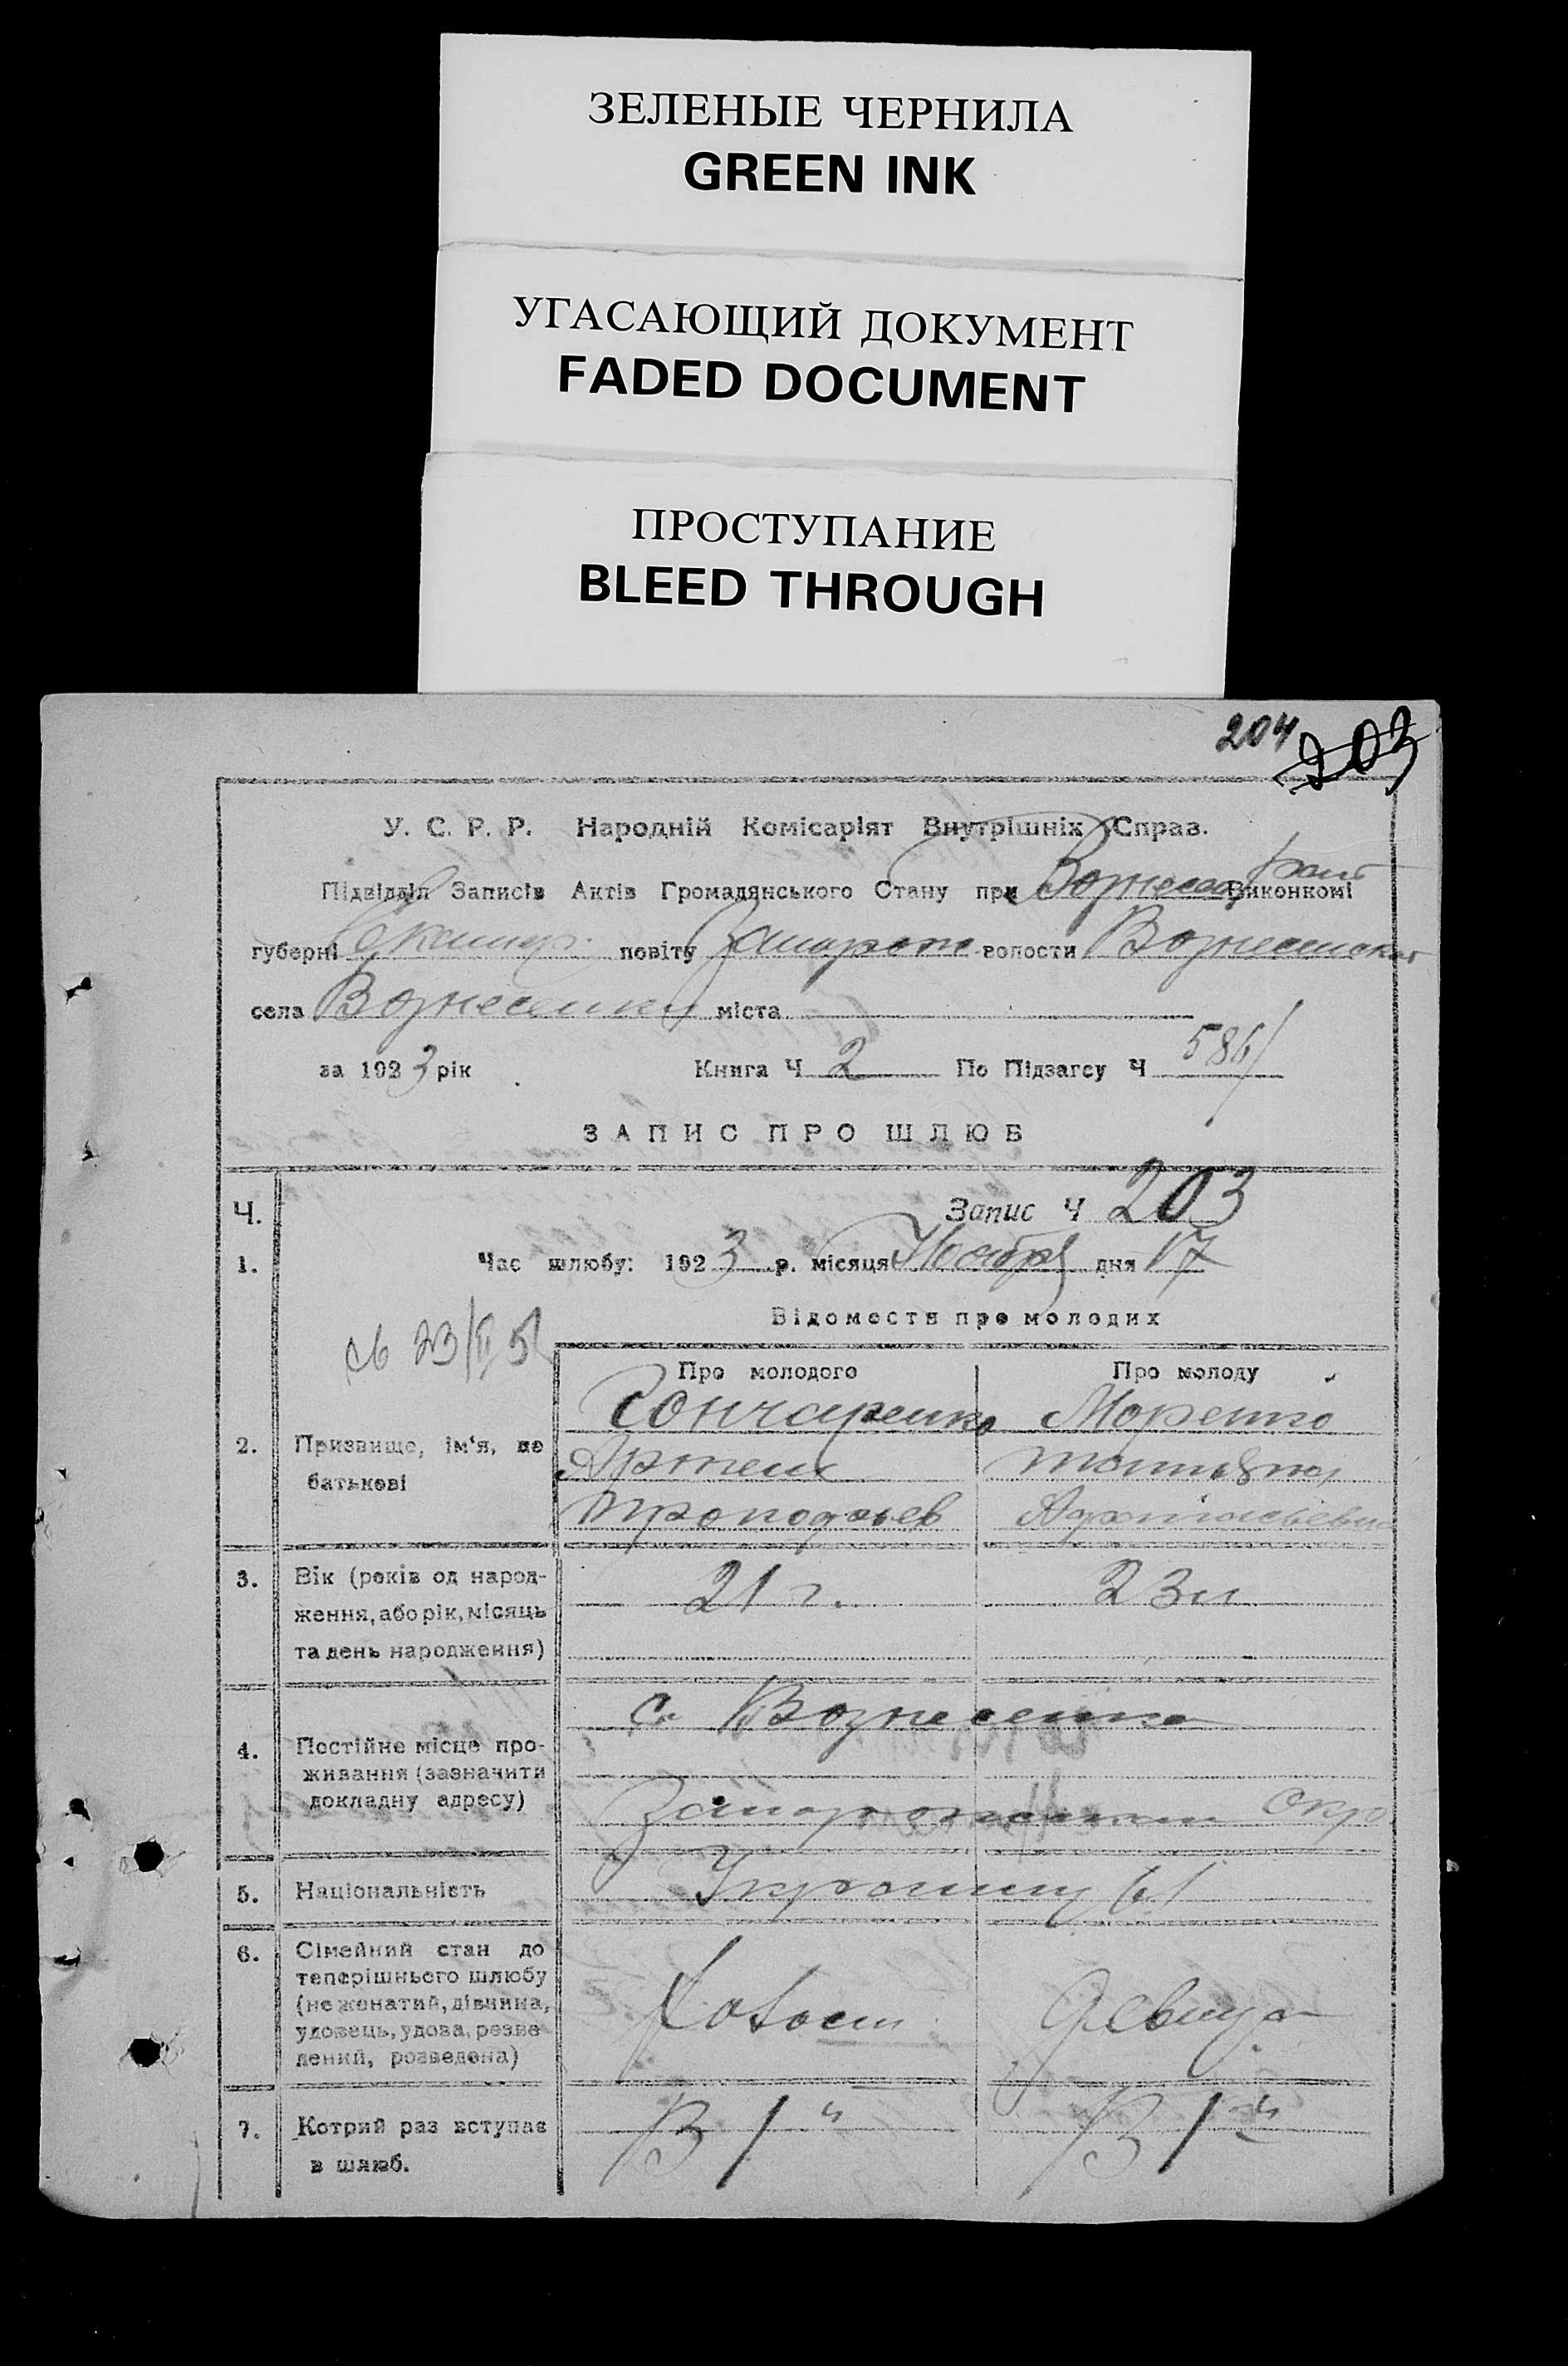 ЗЕЛЕНЫЕ ЧЕРНИЛА
GREEN INK
УГАСАЮЩИЙ ДОКУМЕНТ
FADED DOCUMENT
ПРОСТУПАНИЕ
BLEED THROUGH
204 203
У. С. Р. Р. Народній Комісаріят Внутрішніх Справ.
Підвідділ Записів Актів Громадянського Стану при Вознесен Виконкомі
губерні повіту Запорож волости Вознесенской
села Вознесенки міста
за 1923 рік Книга Ч 2 По Підзагсу Ч 586
ЗАПИС ПРО ШЛЮБ
Ч. Запис Ч 203
1. Час шлюбу: 1923 р. місяця Ноября дня 17
Відомости про молодих
Про молодого Про молоду
Гончаренко Моренко
2. Призвище, ім'я, по батькові
Артем
21 г. 23
3. Вік (років од народ-
ження, або рік, місяць
та день народження)
с. Вознесенка
4. Постійне місце про-
живання (зазначити
докладну адресу)
Окр.
5. Національність
6. Сімейний стан до
теперішнього шлюбу
(не жонатий, дівчина,
удовець, удова, розве-
дений, розведена)
Холост Девица
7. Котрий раз вступає В 1й В 1й
в шлюб.